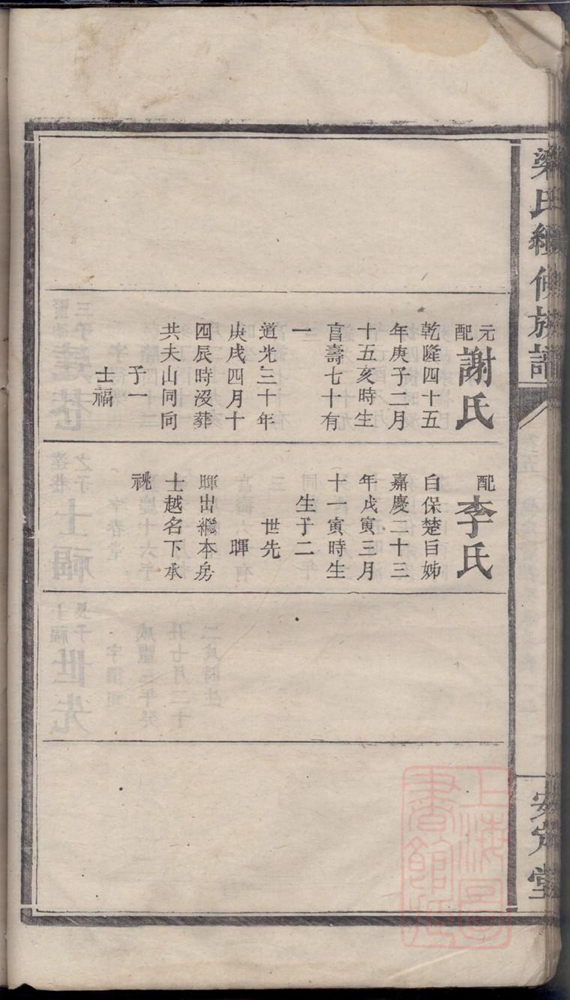 元配謝氏
乾隆四十五
年庚子二月
十五亥時生
盲壽七十有
一
道光三十年
庚戌四月十
四辰時沒葬
共夫山同向
子一
士福
配李氏
白保楚巨姊
嘉慶二十三
年戊寅三月
十一寅時生
生子二
世先
暉
暉出繼本房
士越名下承
祧
安定堂
上海圖
書館藏